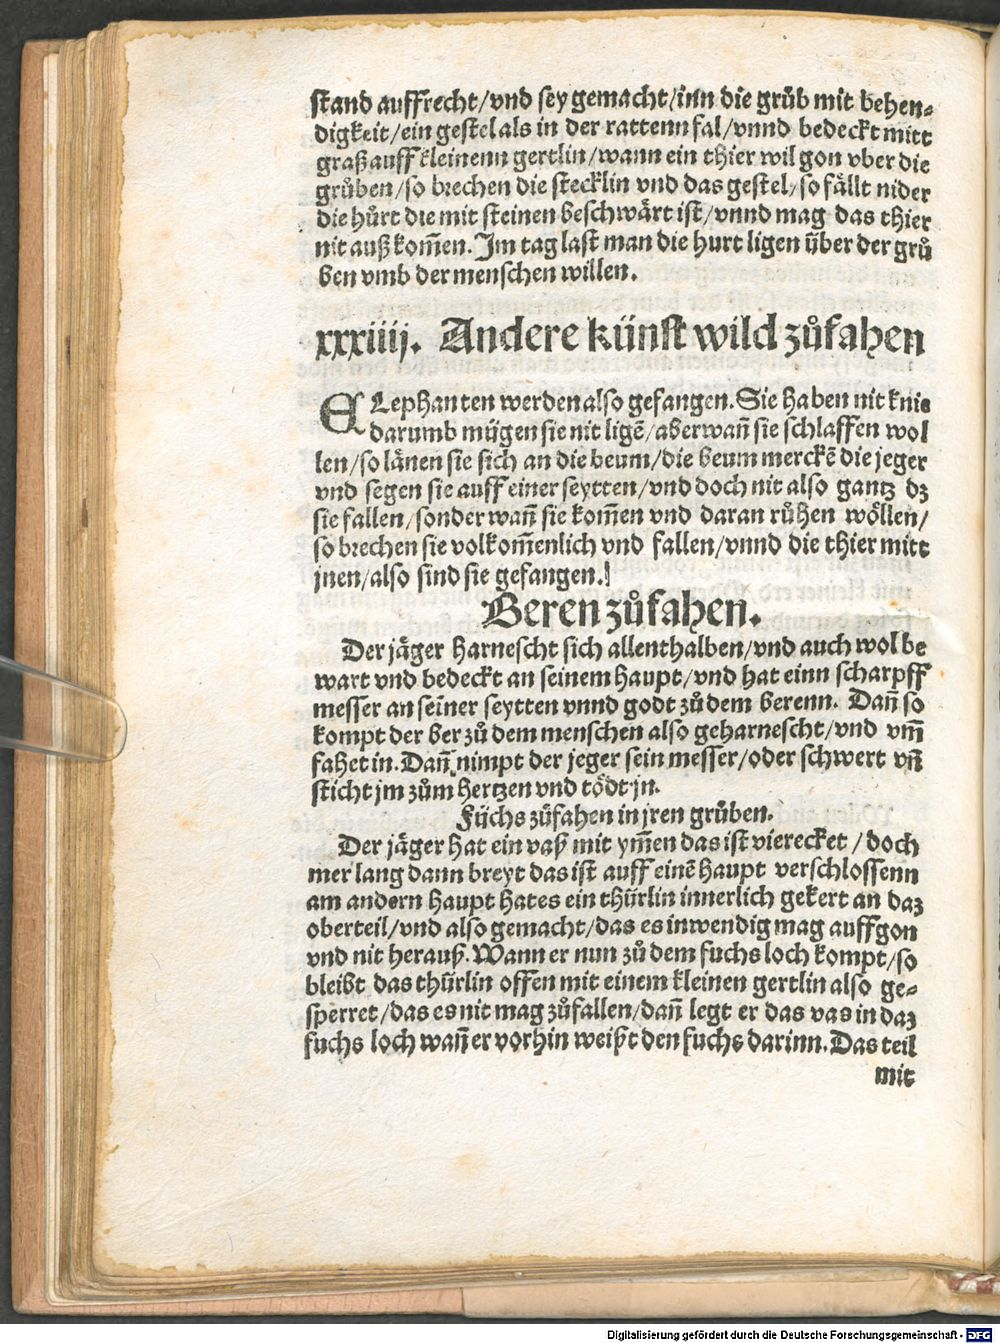 stand auffrecht/vnd sey gemacht/inn die grůb mit behen⸗
digkeit/ein gestel als in der rattenn fal/vnnd bedeckt mitt
graß auff kleinenn gertlin/wann ein thier wil gon vber die
grůben/so brechen die stecklin vnd das gestel/so fällt nider
die hůrt die mit steinen beschwärt ist/vnnd mag das thier
nit auß kom̃en. Im tag last man die hurt ligen über der grů
ben vmb der menschen willen.
xxxiiij. Andere künst wild zůfahen
ELephanten werden also gefangen. Sie haben nit knie
darumb mügen sie nit ligẽ/aber wañ sie schlaffen wol
len/so länen sie sich an die beum/die beum merckẽ die jeger
vnd segen sie auff einer seytten/vnd doch nit also gantz dz
sie fallen/sonder wañ sie kom̃en vnd daran růhen wöllen/
so brechen sie volkom̃enlich vnd fallen/vnnd die thier mitt
jnen/also sind sie gefangen.
Beren zůfahen.
Der jäger harnescht sich allenthalben/vnd auch wol be
wart vnd bedeckt an seinem haupt/vnd hat einn scharpff
messer an seiner seytten vnnd godt zů dem berenn. Dañ so
kompt der ber zů dem menschen also geharnescht/vnd vm̃
fahet in. Dañ nimpt der jeger sein messer/oder schwert vñ
sticht jm zům hertzen vnd tödt jn.
Füchs zůfahen in jren grůben.
Der jäger hat ein vaß mit ym̃en das ist vierecket/doch
mer lang dann breyt das ist auff einẽ haupt verschlossenn
am andern haupt hat es ein thürlin innerlich gekert an daz
oberteil/vnd also gemacht/das es inwendig mag auffgon
vnd nit herauß. Wann er nun zů dem fuchs loch kompt/so
bleibt das thürlin offen mit einem kleinen gertlin also ge⸗
sperret/das es nit mag zůfallen/dañ legt er das vas in daz
fuchs loch wañ er vorhin weißt den fuchs darinn. Das teil
mit
Digitalisierung gefördert durch die Deutsche Forschungsgemeinschaft - DFG